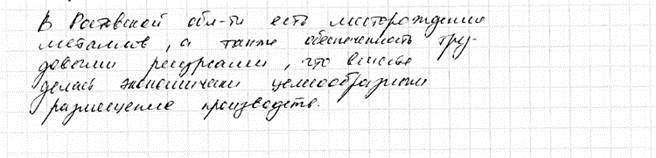 В Ростовской обл-ти есть месторождения
металлов, а также обеспеченность тру-
довыми ресурсами, что
делась экономически целесообразным
размещение производств.